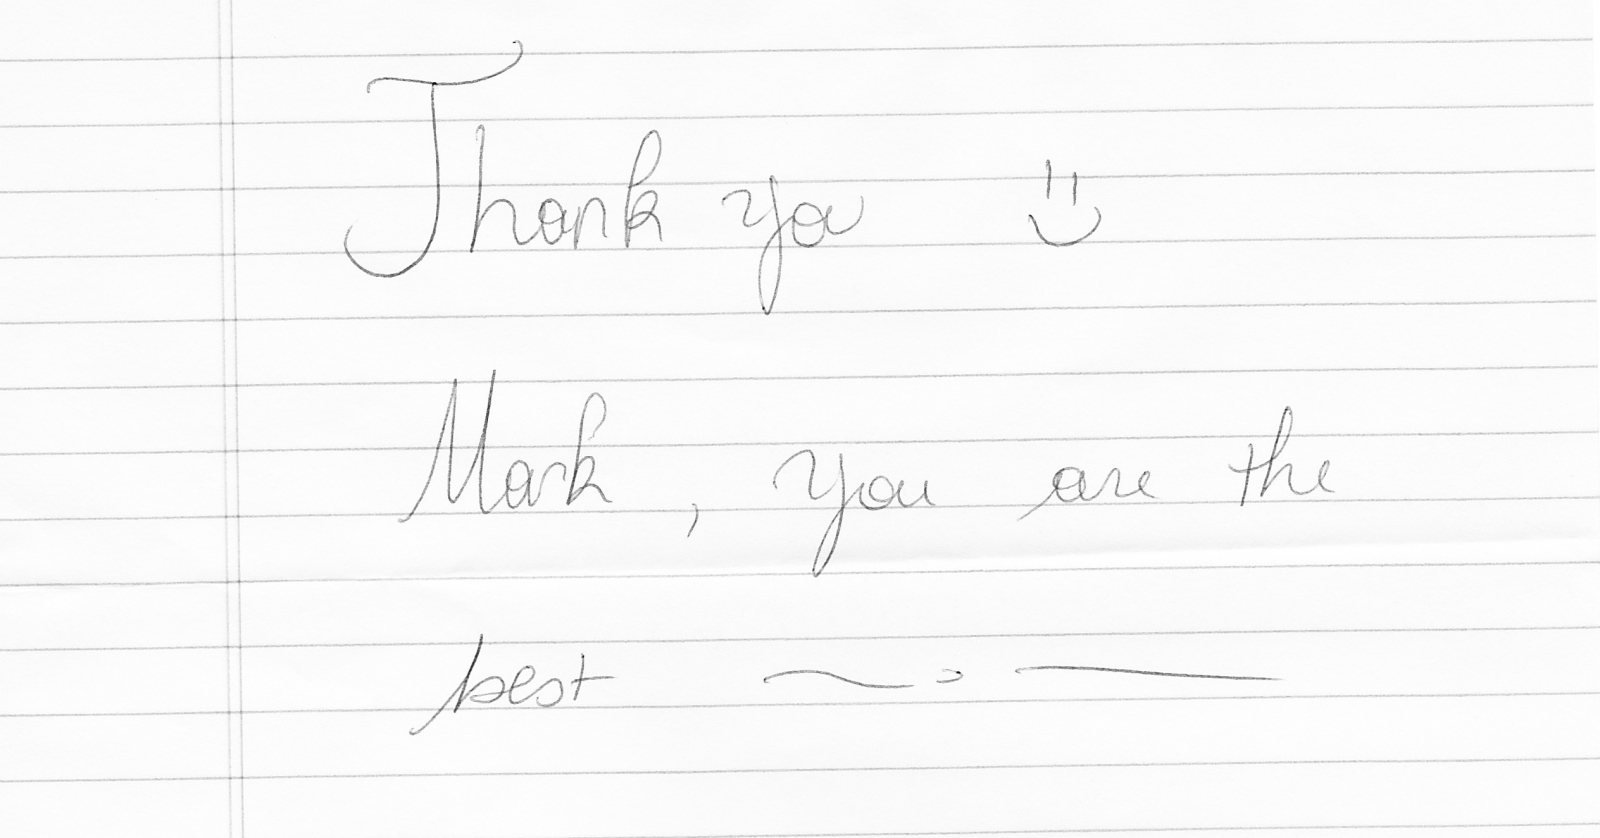 Thank you
Mark, you are the
best